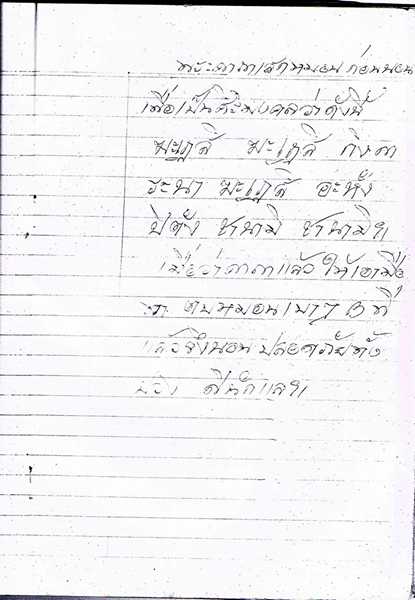 พระคาถาเสกหมอน ก่อนนอน
เพื่อเป็นศิริมงคลว่าดังนี้
มะเฏลิ มะเฏลิ กิงกา
ระนา มะเฏลิ อะหัง
ปิหัง ชานามิ ชานามิฯ
เมื่อว่าคาถาแล้ว ให้เอามือ
ตบหมอนเบาๆ 3 ที
แล้วจึงนอน ปลอดภัยทั้ง
ดีนักแลฯ